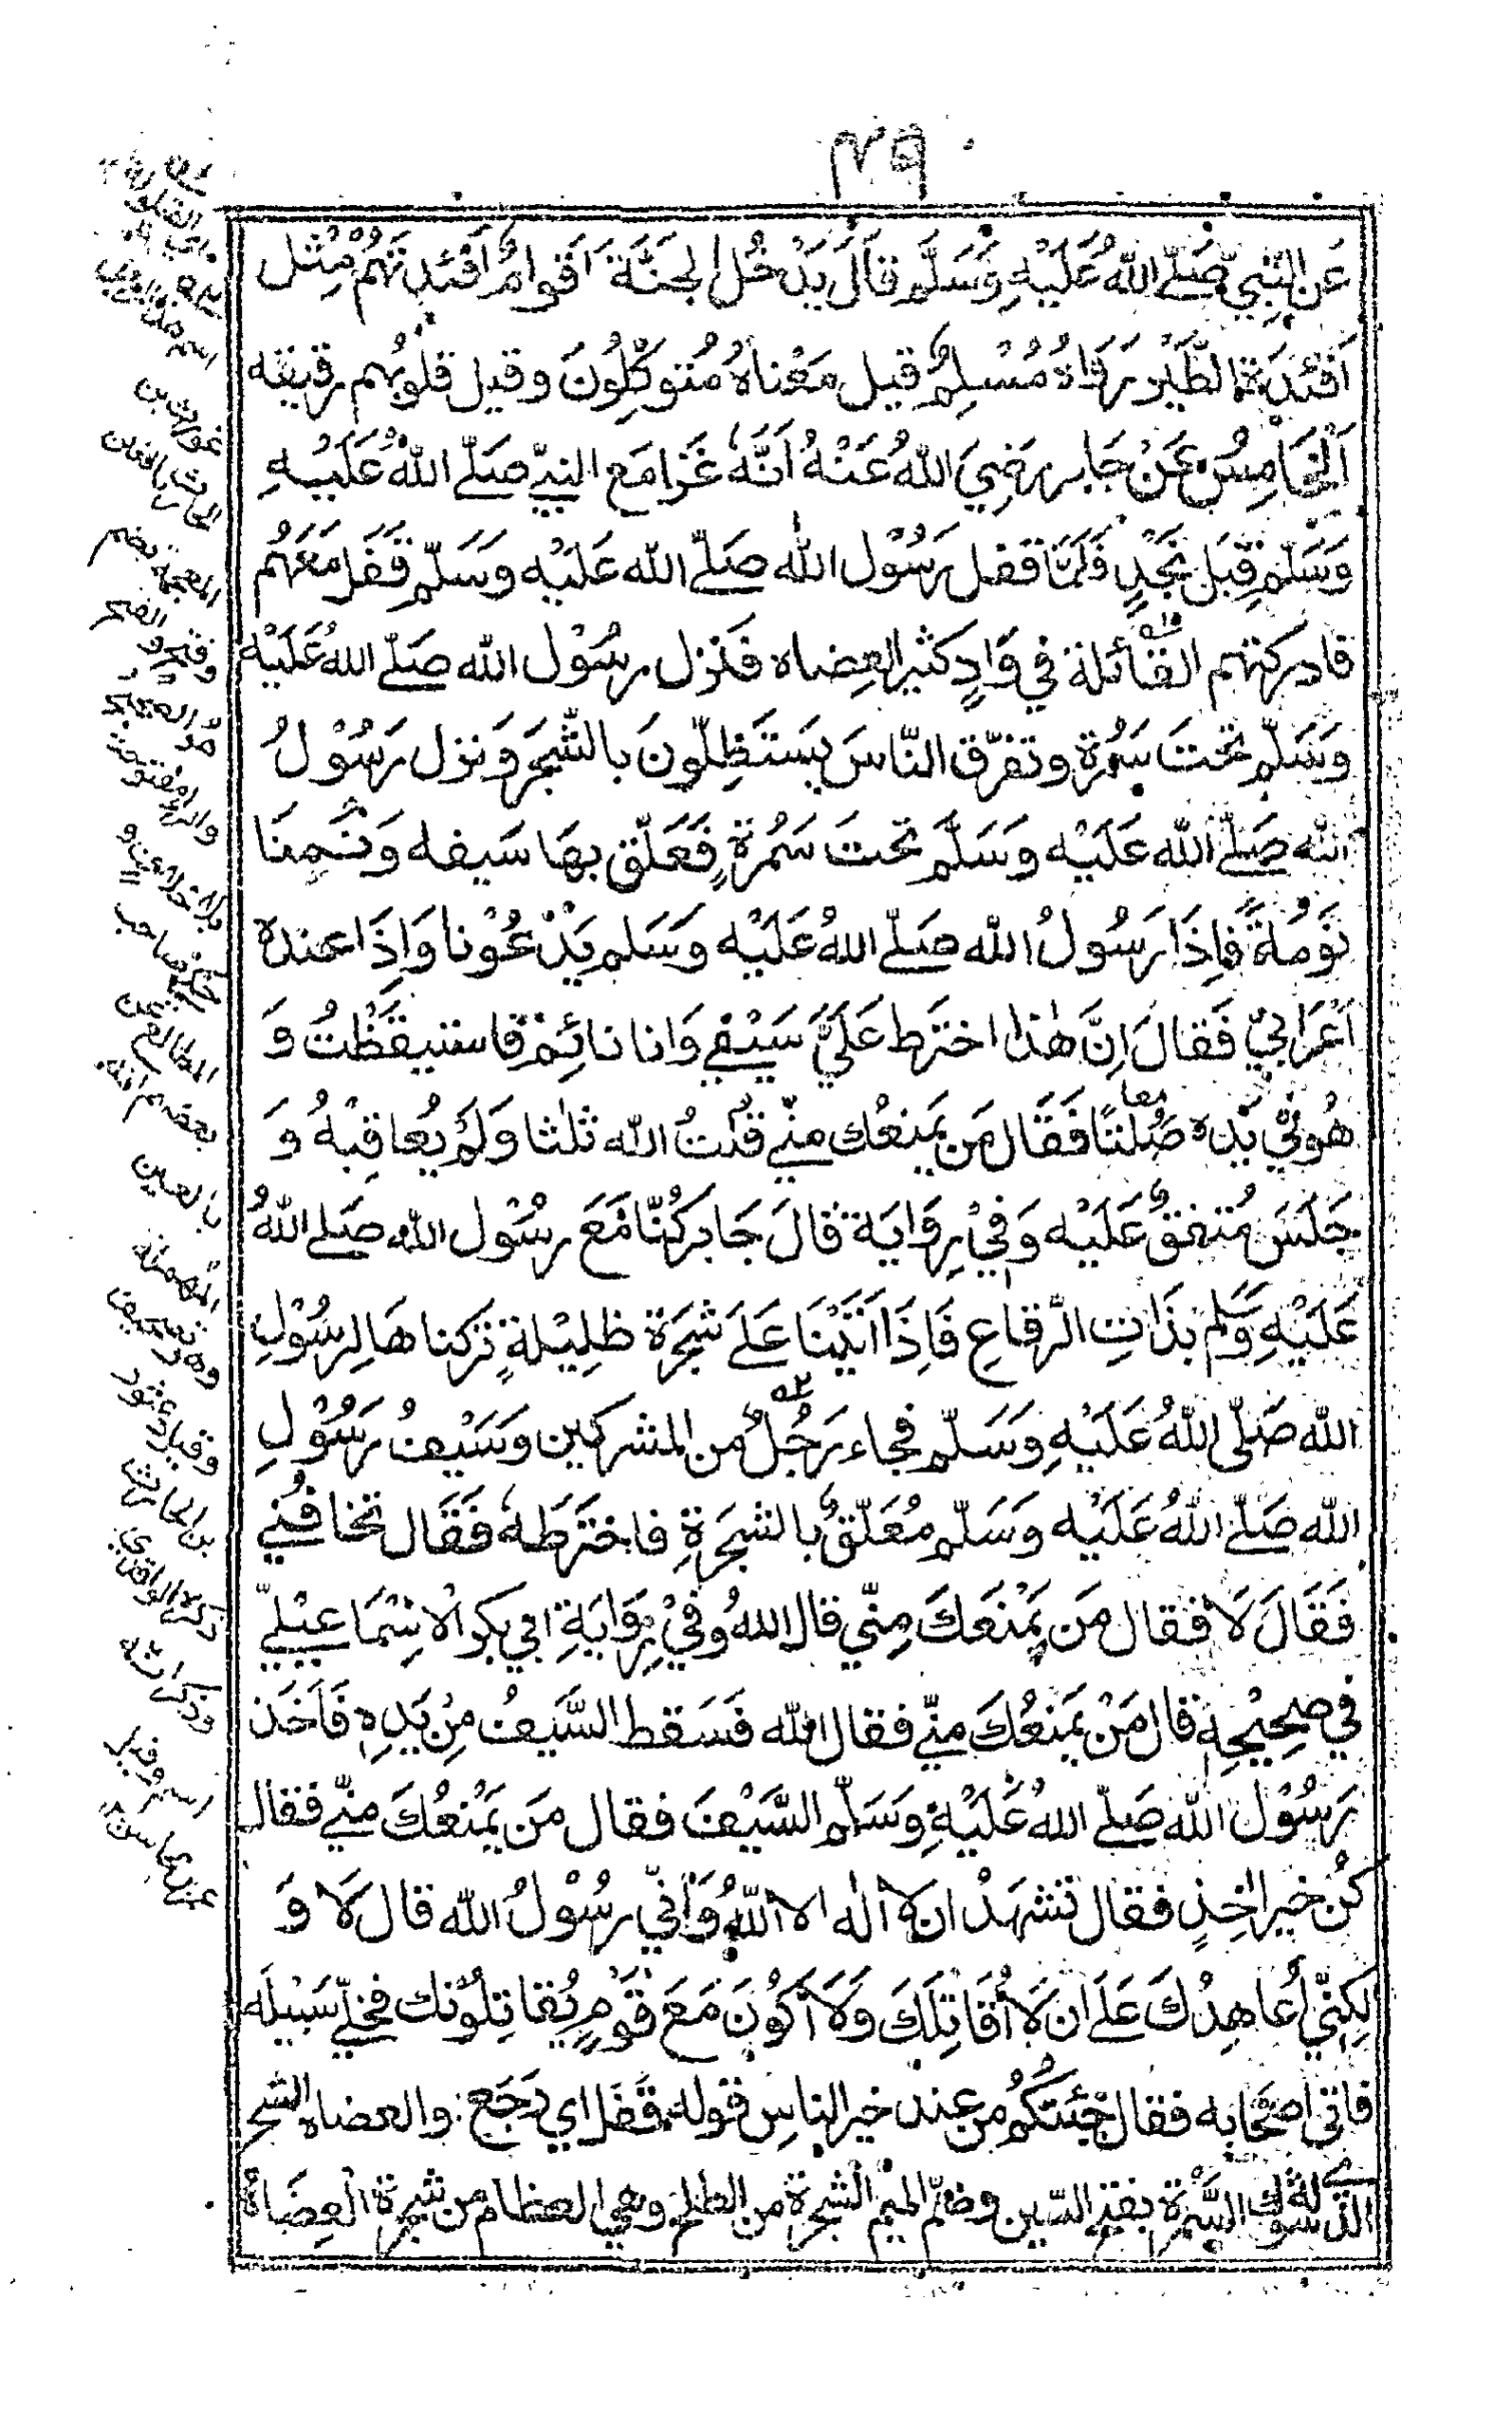 ٤٩
عَنِ النَّبِيِّ صَلَّى اللّٰهُ عَلَيْهِ وَسَلَّمَ قَالَ يَدْخُلُ الْجَنَّةَ اَقْوَامٌ اَفْئِدَتُهُمْ مِثْل
اَفْئِدَةِ الطَّيْرِ رَوَاهُ مُسْلِمٌ قيل مَعْناهُ مُتَوكِّلُونَ وقيل قلوبُهم رقيقه
اَلْخَامِسُ عَنْ جَابِر رَضِيَ اللهُ عَنْهُ اَنَّهُ غَزَا مَعَ النبيّ صَلّى اللهُ عَلَيْهِ
وَسَلّم قِبَلَ نَجْدٍ فَلَمَّا قفل رَسُوْل الله صَلّى الله عَلَيْه وَسَلّم قَفَل مَعَهُم
فادركتهم القائلة في وَادٍ كثير العِضاه فَنَزل رسُوْل الله صَلّى اللهُ عَلَيْه
وَسَلّم تحتَ سَمُرة وتفرّق النّاسَ يَستَظِلّونَ بالشَّجَر وَنزل رَسُوْلُ
الله صَلّى الله عَلَيْه وَسَلَّم تحتَ سَمُرةٍ فَعَلّق بهَا سَيفه وَنَمِنَا
نَوْمَةً فَاِذَا رَسُولُ الله صَلّى اللهُ عَلَيْه وَسَلم يَدْعُوْنا وَاِذَا عنده
اَعْرَابيٌّ فَقَالَ اِنَّ هٰذا اخترَط عَلَيَّ سَيْفي وَانا نائِمٌ فاستيقَظْتُ وَ
هُوَ فِي يَدِه صُلْتًا فَقَال مَن يَمنَعُك مِنّي قلتُ الله ثلٰثا وَلَمْ يُعاقِبْهُ وَ
جَلَسَ مُتفقٌ عَلَيْه وَفِيْ رِوَايَة قَالَ جَابر كُنّا مَعَ رسُوْل الله صَلى اللهُ
عَلَيْهِ وَسَلم بذَاتِ الرّقاعِ فَاِذَا اَتَيْنَا عَلَى شَجَرَة ظَلِيْلَةٍ تركناهَا لِرسُوْلِ
الله صَلّى اللهُ عَلَيْهِ وَسَلّم فجاء رَجُلٌ من المشركين وَسَيْفُ رَسُوْلِ
الله صَلّى اللهُ عَلَيْه وَسَلّم مُعَلّقٌ بالشجَرَةِ فاخترَطَهُ فَقَال تخافُنِي
فَقَالَ لَا فقال مَن يَمْنَعُكَ مِنّي قال اللهُ وَفِيْ رِوَايَةِ ابي بكر الاسْمَاعِيْلِيّ
في صحِيْحِهِ قال مَنْ يَمنَعُكَ مِنّي فقال الله فَسَقط السَّيفُ مِنْ يَدِهِ فَاَخَذ
رَسُوْل الله صَلّى اللهُ عَلَيْهِ وَسَلّم السَّيْفَ فقال مَن يَمْنَعُكَ مِنّي فقال
كُن خير اٰخِذٍ فقال تشهَدُ ان لَا اله الا اللهُ وَاَنِّي رسُوْلُ الله قال لَا وَ
لٰكِنّي اُعَاهِدُكَ عَلَى ان لَا اُقَاتِلَكَ وَلَا اَكُوْنَ مَعَ قَوْمٍ يُقَاتِلُوْنك فخلّى سَبِيْلَه
فاتى اصحَابه فقال جِئتكُم من عند خير الناسِ قوله قَفَل اي رَجَعَ والعضاه الشجر
الذي له شوك السَّمُرة بفتح السّين وضمّ الميم الشَّجرة من الطلح وهي العظام من شجرة العِضَاهُ
غورث بن
الحارث بالغين
المعجمة بضم
وفتح والفتح
بالعين
المهملة
وقيل دعثور
بن الحارث
ذكره الواقدي
وذكر انه
اسلم وقيل